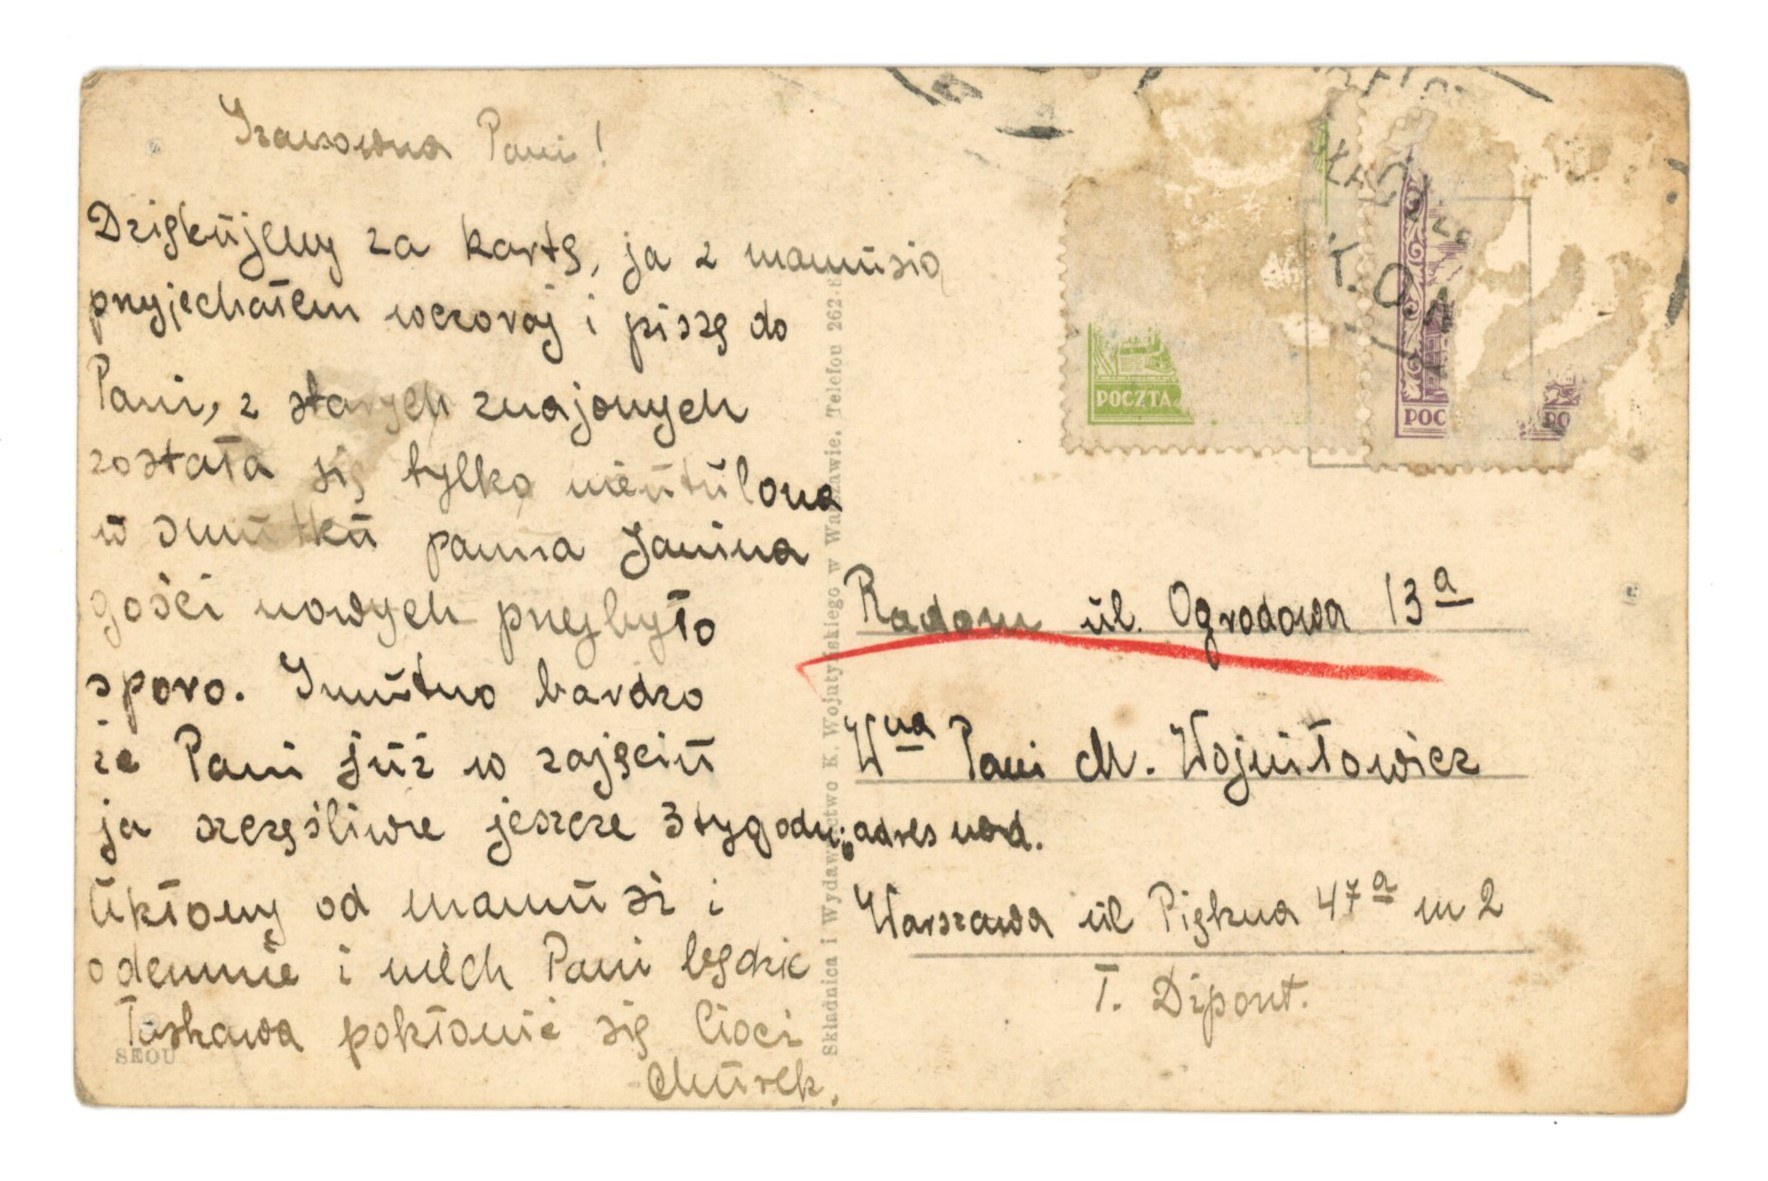 Szanowna Pani!
Dziękujemy za kartę, ja z mamusią
przyjechałem wczoraj i piszę do
Pani, z starych znajomych
została się tylko nieutulona
w smutku panna Janina
gości nowych przybyło
sporo. Smutno bardzo
że Pani już w zajęciu
ja szczęśliwie jeszcze 3 tygodn;
Ukłony od mamusi i
odemnie i niech Pani będzie
łaskawa pokłonić się Cioci
Murek.
SEOU
Składnica i Wydawnictwo K. Wojutyńskiego w Warszawie. Telefon 262-8
POCZTA
POC
PO
Radom ul. Ogrodowa 13a
Wna Pani M. Wojniłowicz
adres nad.
Warszawa ul Piękna 47a m 2
T. Dzpont.